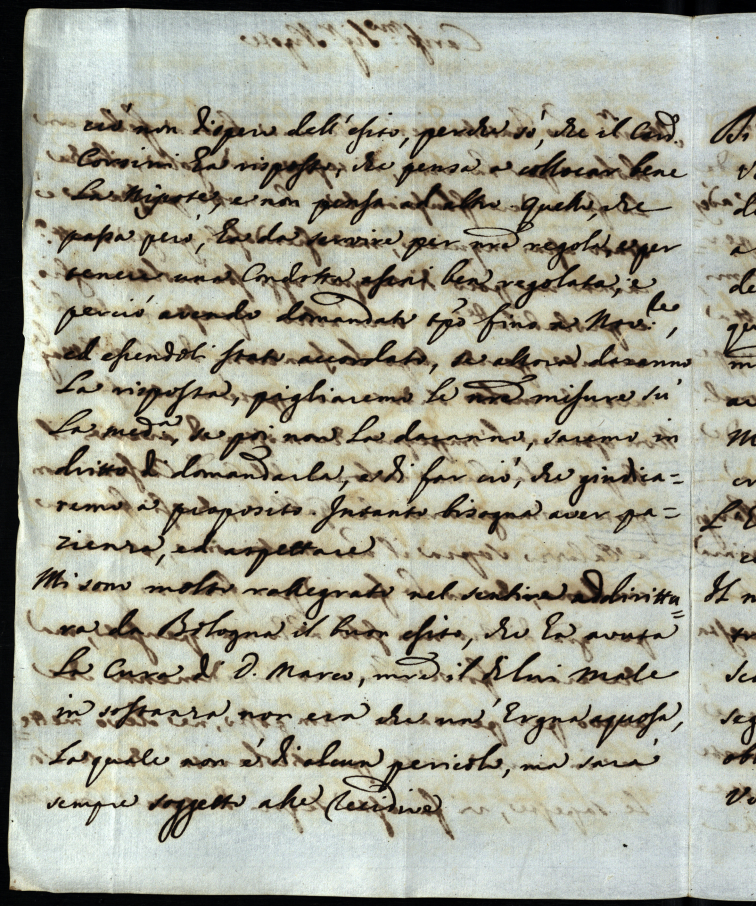 ciò non dispero dell'esito, perche sò, che il Card.
Corsini ha risposto, che pensa a collocar bene
La Nipote, e non pensa ad altro. Quello, che
passa però, ha da servire per nr̃a regola, e per
tenere una Condotta assai ben regolata, e
perciò avendo domandato tp̃o fino a Nov.bre,
ed essendoli stato accordato, se allora daranno
La risposta, pigliaremo le nr̃e misure sù
La med.a, se poi non La daranno, saremo in
dritto di domandarla, e di far ciò, che giudica=
remo à proposito. Intanto bisogna aver pa=
zienza, ed aspettare
Mi sono molto rallegrato nel sentire addirittu=
ra da Bologna il buon esito, che ha avuto
La Cura di D. Marco, il di lui male
in sostanza non era che un' Ergna aquosa,
La quale non è di alcun pericolo, ma sarà
sempre soggetto alle recidive